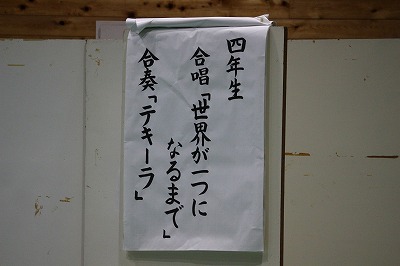 四年生
合唱「世界が一つに
なるまで」
合奏「テキーラ」